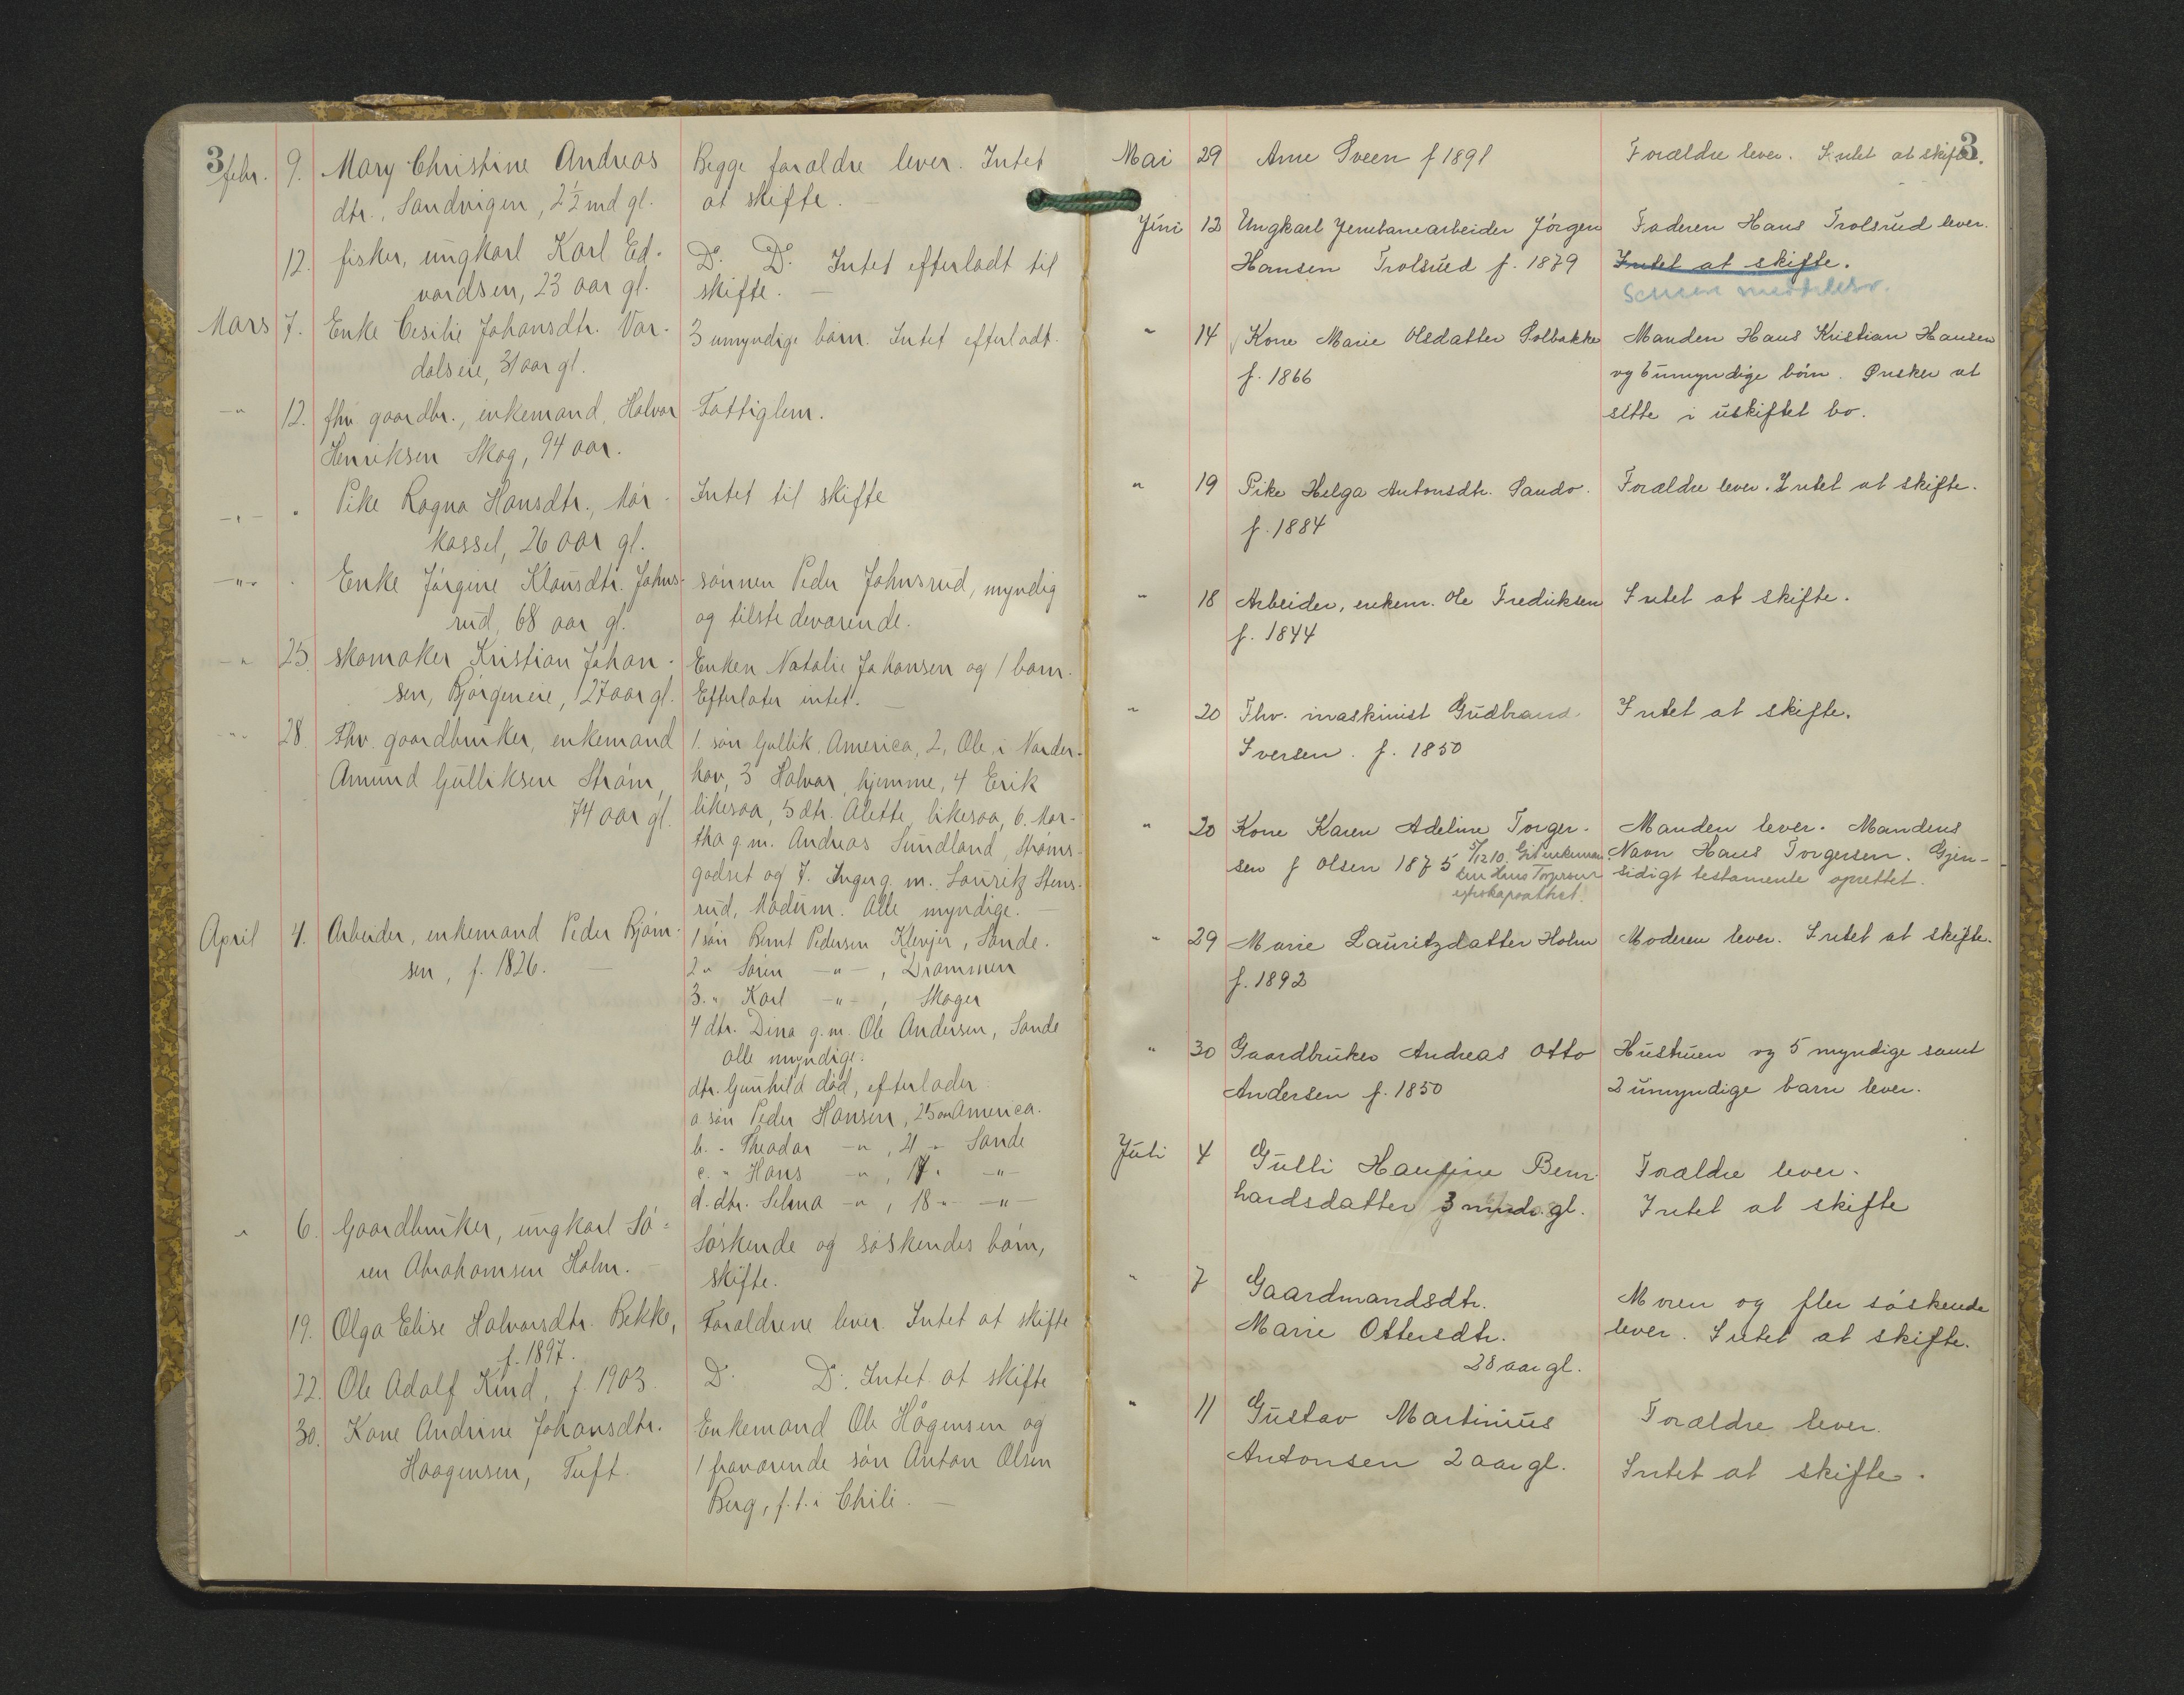 3
febr. 9. Mary Christine Andreas Begge forældre lever. Intet
dtr., Sandvigen, 2½ md gl. at skifte. —
12. fisker, ungkarl Karl Ed- Do. Do. Intet efterladt til
vardsen, 23 aar gl. skifte. —
Mars 7. Enke Cesilie Johansdtr. Var- 3 umyndige børn. Intet efterladt.
dalseie, 31 aar gl.
—"— 12. fhv. gaardbr., enkemand, Halvor Fattiglem.
Henriksen Skog, 94 aar.
—"— " Pike Ragna Hansdtr., Mør- Intet til skifte
kassel, 26 aar gl.
—"— " Enke Jørgine Klausdtr. Johns- sønnen Peder Johnsrud, myndig
rud, 68 aar gl. og tilstedeværende.
—" 25. skomaker Kristian Johan- Enken Natalie Johansen og 1 barn.
sen, Bjørgeneie, 27 aar gl. Efterlater intet. —
—"— 28. Fhv. gaardbruker, enkemand 1. søn Gullik, America, 2, Ole i Norder-
Amund Gulliksen Strøm, hov, 3 Halvor, hjemme, 4 Erik
74 aar gl. likesaa, 5 dtr. Alette, likesaa, 6. Mar-
tha g.m. Andreas Sundland, Strøms-
godset og 7. Inger g. m. Lauritz Stens-
rud, Modum. Alle myndige. —
April 4. Arbeider, enkemand Peder Bjørn- 1 søn Bernt Pedersen Klevjer, Sande.
sen, f. 1826. — 2 " Søren —"—, Drammen
3. " Karl —"—, Skoger
4 dtr. Dina g.m. Ole Andersen, Sande
alle myndige.
dtr. Gunhild død, efterlader
a søn Peder Hansen, 25 aar America.
b. " Theodor —"—, 21 " Sande
c. " Hans —"—, 17 " —"—
d. dtr. Selma —"—, 18 " —"—
" 6. Gaardbruker, ungkarl Sø- Søskende og søskendes børn,
ren Abrahamsen Holm. — skifte.
19. Olga Elise Halvorsdtr. Bekke, Forældrene lever. Intet at skifte
f. 1897.
22. Ole Adolf Kind, f. 1903. Do. Do. Intet at skifte
30. Kone Andrine Johansdtr. Enkemand Ole Høgensen og
Haagensen, Tuft. 1 fraværende søn Anton Olsen
Berg, f.t. i Chili. —
3
Mai 29 Arne Sveen f 1891 Forældre lever. Intet at skifte.
Juni 12 Ungkarl Jernbanearbeider Jørgen Faderen Hans Trolsrud lever.
Hansen Trolsrud f. 1879 Intet at skifte.
Senere meddeles.
" 14 Kone Marie Olsdatter Solbakke Manden Hans Kristian Hansen
f. 1866 og 6 umyndige børn. Ønsker at
sitte i uskiftet bo.
" 19 Pike Helga Antonsdtr. Sando. Forældre lever. Intet at skifte.
f. 1884
" 18 Arbeider, enkem. Ole Fredriksen Intet at skifte.
f. 1844
" 20 Fhv. maskinist Gudbrand Intet at skifte.
Iversen. f. 1850
" 20 Kone Karen Adeline Torger- Manden lever. Mandens
sen f Olsen 1875 5/12 10. Git enkeman- Navn Hans Torgersen. Gjen-
den Hans Torgersen sidigt testamente oprettet.
" 29 Marie Lauritzdatter Holm Moderen lever. Intet at skifte.
f. 1892
" 30 Gaardbruker Andreas Otto Hustruen og 5 myndige samt
Andersen f. 1850 2 umyndige barn lever.
Juli 4 Gulli Hansine Bern- Forældre lever.
hardsdatter 3 mndr. gl. Intet at skifte
" 7 Gaardmandsdtr. Moren og fler søskende
Marie Ottersdtr. lever. Intet at skifte.
28 aar gl.
" 11 Gustav Martinius Forældre lever.
Antonsen 2 aar gl. Intet at skifte.